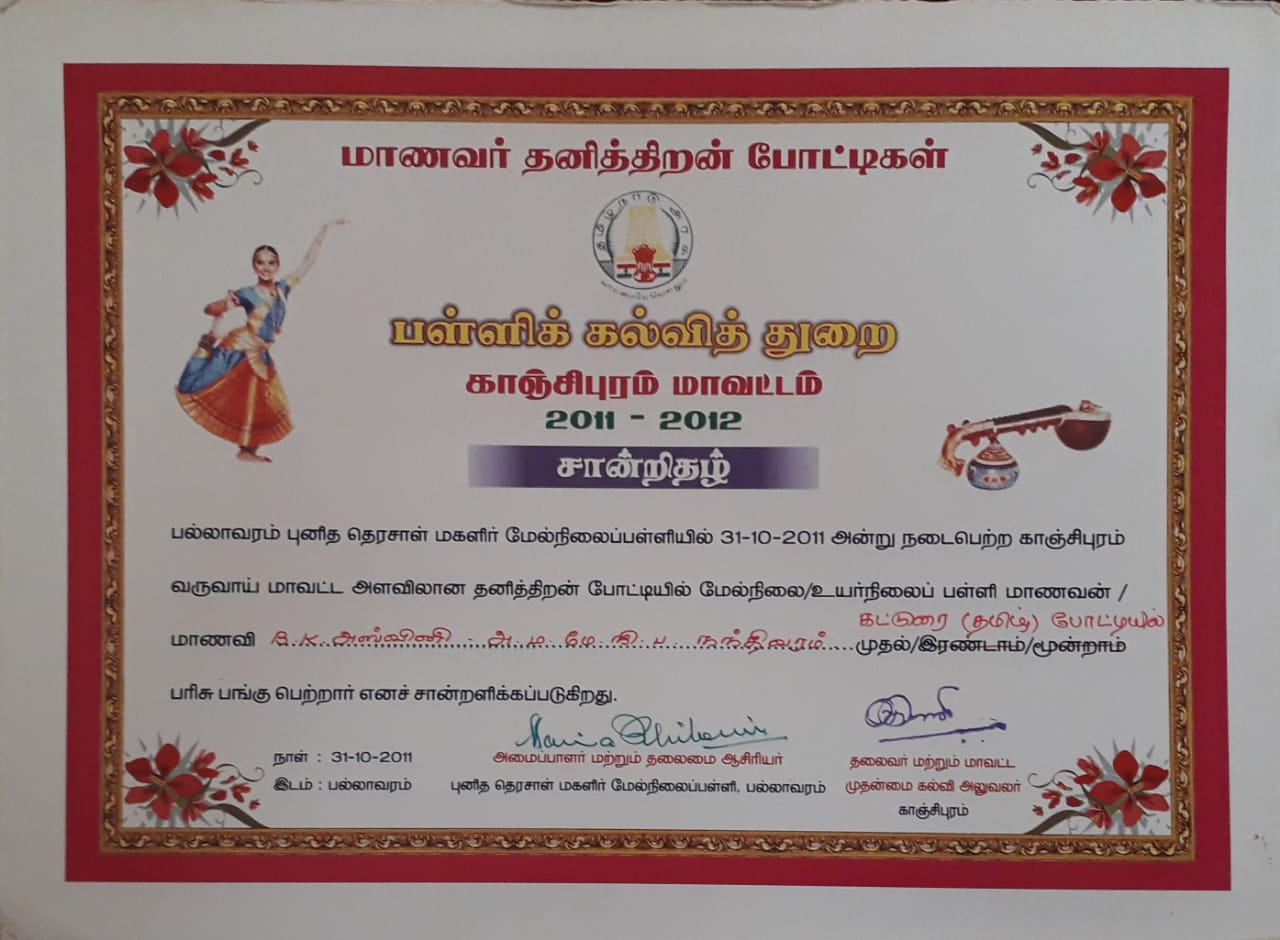 மாணவர் தனித்திறன் போட்டிகள்
தமிழ்நாடு அரசு
வாய்மையே வெல்லும்
பள்ளிக் கல்வித் துறை
காஞ்சிபுரம் மாவட்டம்
2011 - 2012
சான்றிதழ்
பல்லாவரம் புனித தெரசாள் மகளிர் மேல்நிலைப்பள்ளியில் 31-10-2011 அன்று நடைபெற்ற காஞ்சிபுரம்
வருவாய் மாவட்ட அளவிலான தனித்திறன் போட்டியில் மேல்நிலை/உயர்நிலைப் பள்ளி மாணவன் /
கட்டுரை (தமிழ்) போட்டியில்
மாணவி B.K. அஸ்வினி அ. ம. மே. நி. ப. நந்திவரம் முதல்/இரண்டாம்/மூன்றாம்
பரிசு பங்கு பெற்றார் எனச் சான்றளிக்கப்படுகிறது.
நாள் : 31-10-2011
இடம் : பல்லாவரம்
அமைப்பாளர் மற்றும் தலைமை ஆசிரியர்
புனித தெரசாள் மகளிர் மேல்நிலைப்பள்ளி, பல்லாவரம்
தலைவர் மற்றும் மாவட்ட
முதன்மை கல்வி அலுவலர்
காஞ்சிபுரம்